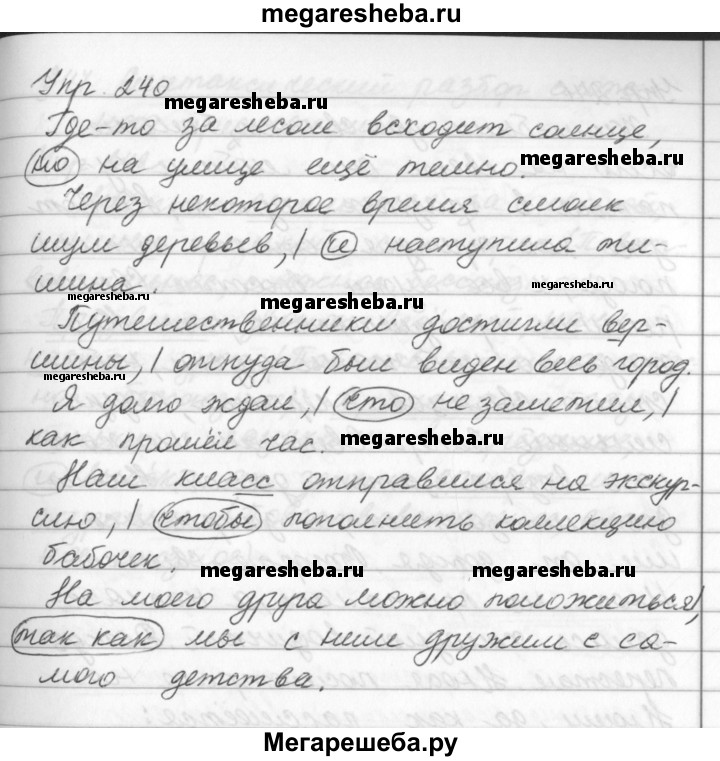 megaresheba.ru
Упр. 240
megaresheba.ru
Где-то за лесом всходит солнце,
но на улице ещё темно.
megaresheba.ru
Через некоторое время смолк
шум деревьев, | и наступила ти-
шина.
megaresheba.ru
megaresheba.ru
megaresheba.ru
Путешественники достигли вер-
шины, | откуда был виден весь город.
megaresheba.ru
Я долго ждал, | что не заметил, |
как прошёл час.
megaresheba.ru
Наш класс отправился на экскур-
сию, | чтобы пополнить коллекцию
бабочек.
megaresheba.ru
megaresheba.ru
На моего друга можно положиться, |
так как мы с ним дружим с са-
мого детства.
Мегарешеба.ру